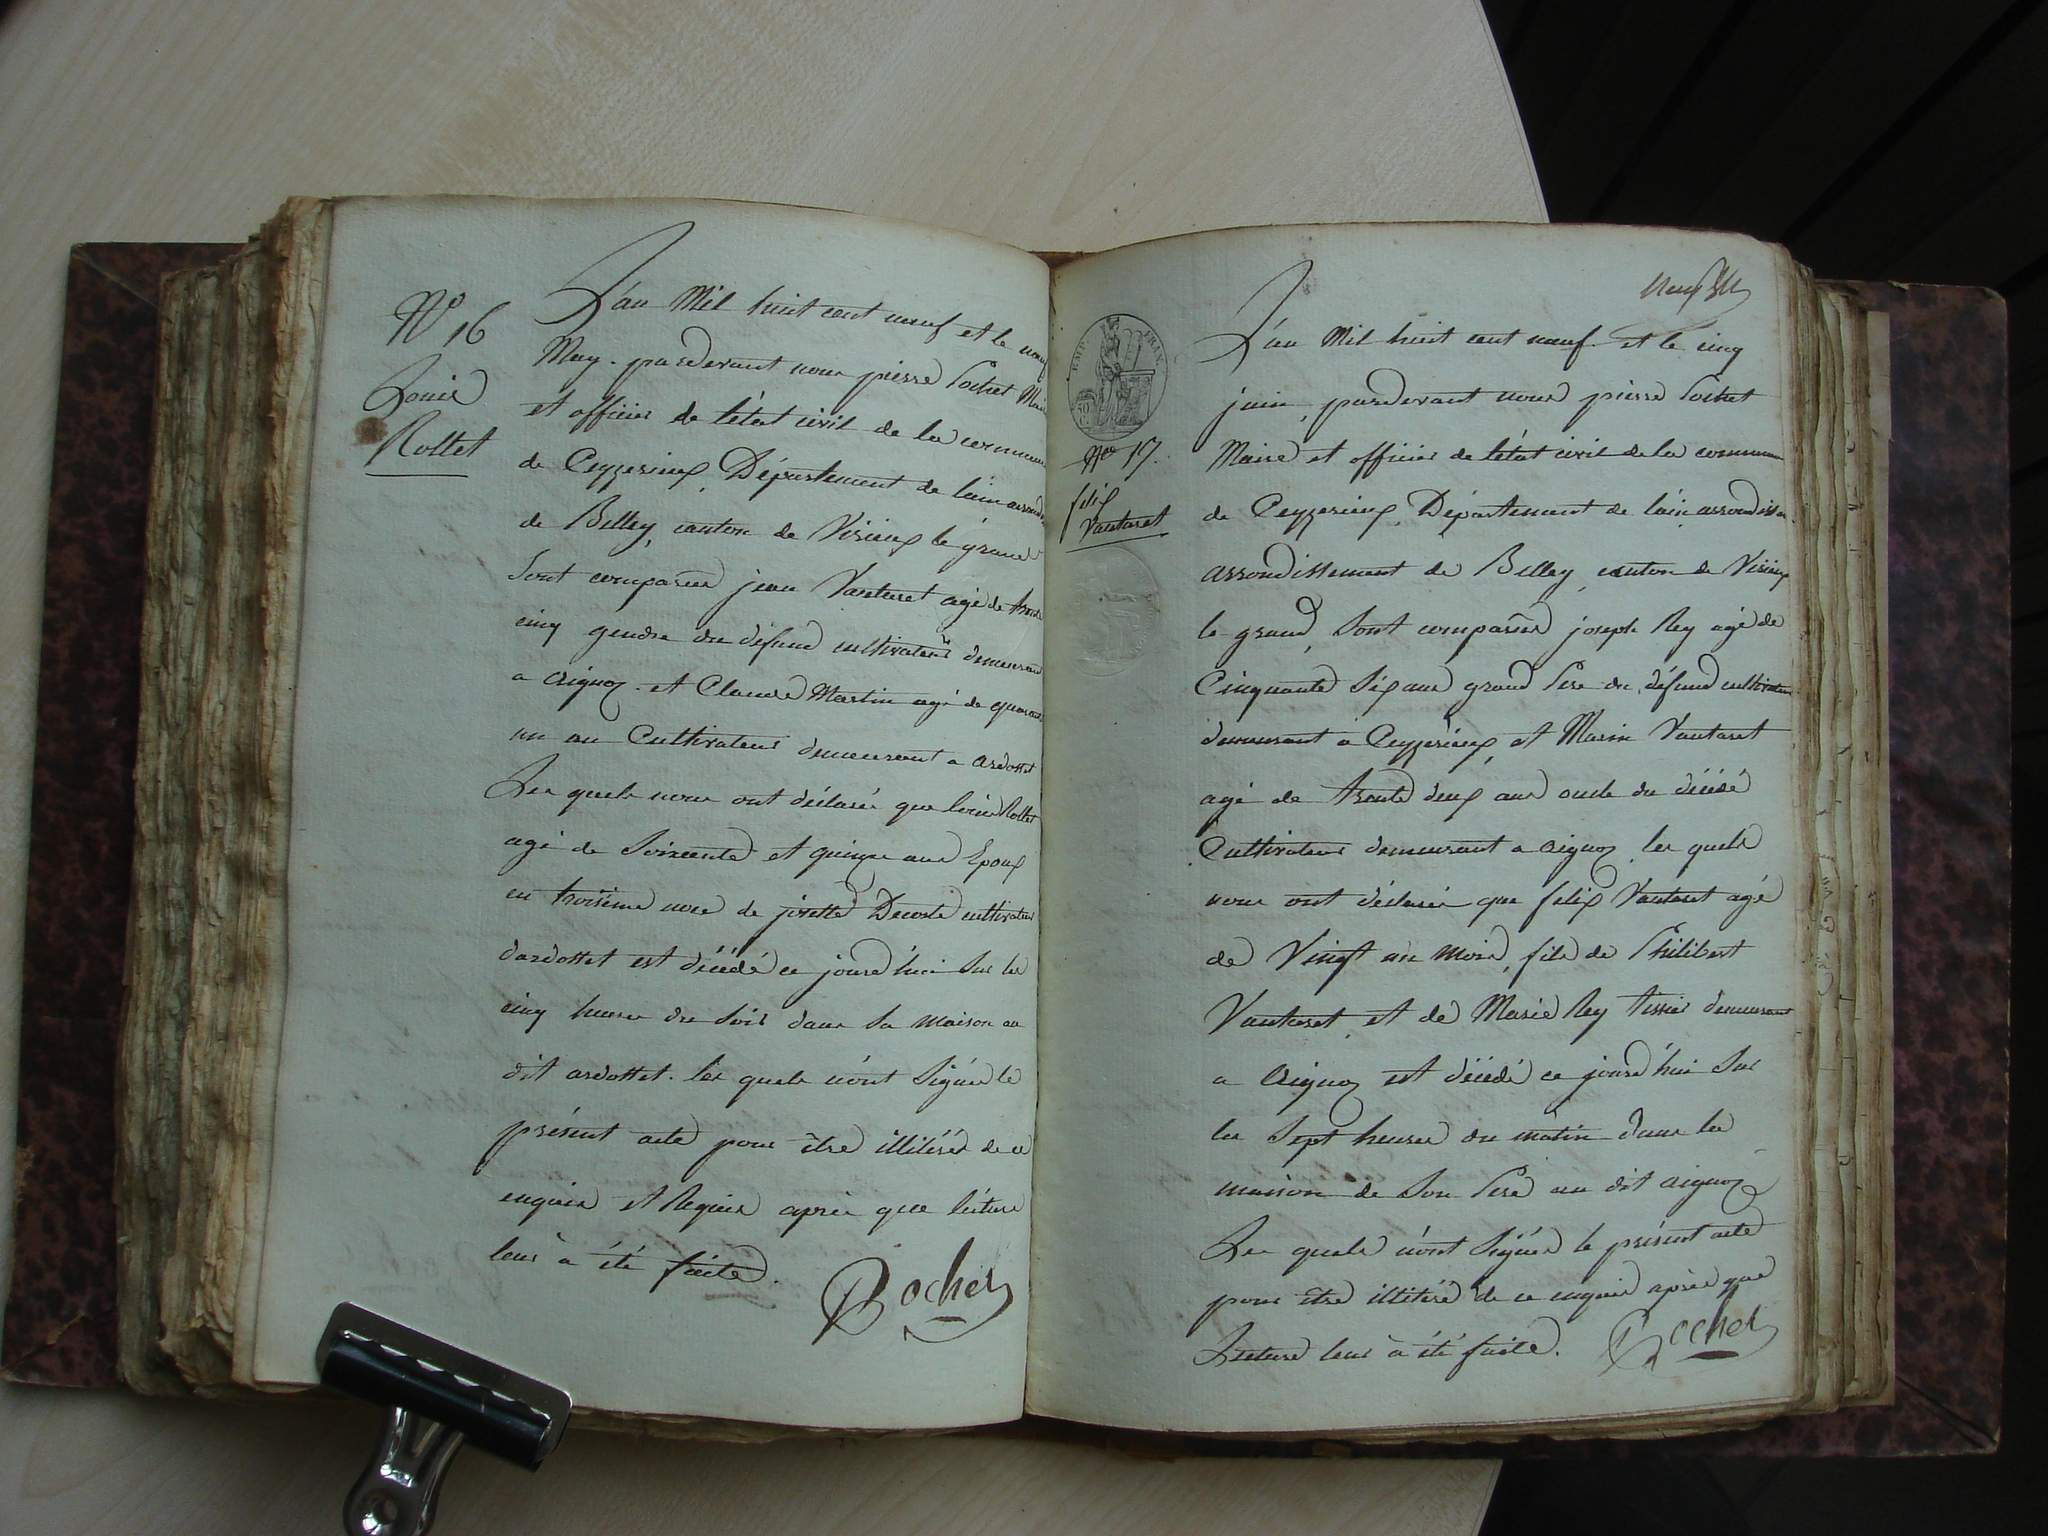 Nº 16
Louis
Rollet
L'an Mil huit cent neuf et le neuf
May. pardevant nous pierre Pochet Maire
et officier de l'état civil de la commune
de Ceyzerieux, Département de l'ain arrondis
de Belley, canton de Virieux le grand
Sont comparus jean Vautaret agé de trente
cinq gendre du défund cultivateur demeurant
a aignoz. et Claude Martin agé de quarante
un an Cultivateur demeurant a ardosset
Les quels nous ont déclaré que louis Rollet
agé de Soixante et quinze ans Epoux
en troisième noce de josette Decoste cultivateur
dardosset est décédé ce jourd'hui Sur les
cinq heures du Soir dans Sa maison au
dit ardosset. les quels n'ont Signés le
présent acte pour être illitérés de ce
enquis et Requis après que lecture
leur à été faite.
Pochet
EMP. FRAN.
Nos 17.
felix
Vautaret
L'an Mil huit cent neuf. et le cinq
juin, pardevant nous pierre Pochet
Maire et officier de l'état civil de la commune
de Ceyzerieux, Département de l'ain arrondisse
arrondissement de Belley, canton de Virieux
le grand, Sont comparus joseph Rey agé de
Cinquante Six ans grand Pere du défund cultivateur
demeurant a Ceyzerieux, et Marin Vautaret
agé de trente deux ans oncle du décédé
Cultivateur demeurant a aignoz les quels
nous ont déclaré que felix Vautaret agé
de Vingt un mois, fils de Philibert
Vautaret, et de Marie Rey tissier demeurant
a aignoz est décédé ce jourd'hui Sur
les Sept heures du matin dans la
maison de Son Pere au dit aignoz
Les quels n'ont Signés le présent acte
pour être illitéré de ce enquis après que
Lecture leur à été faite.
Pochet